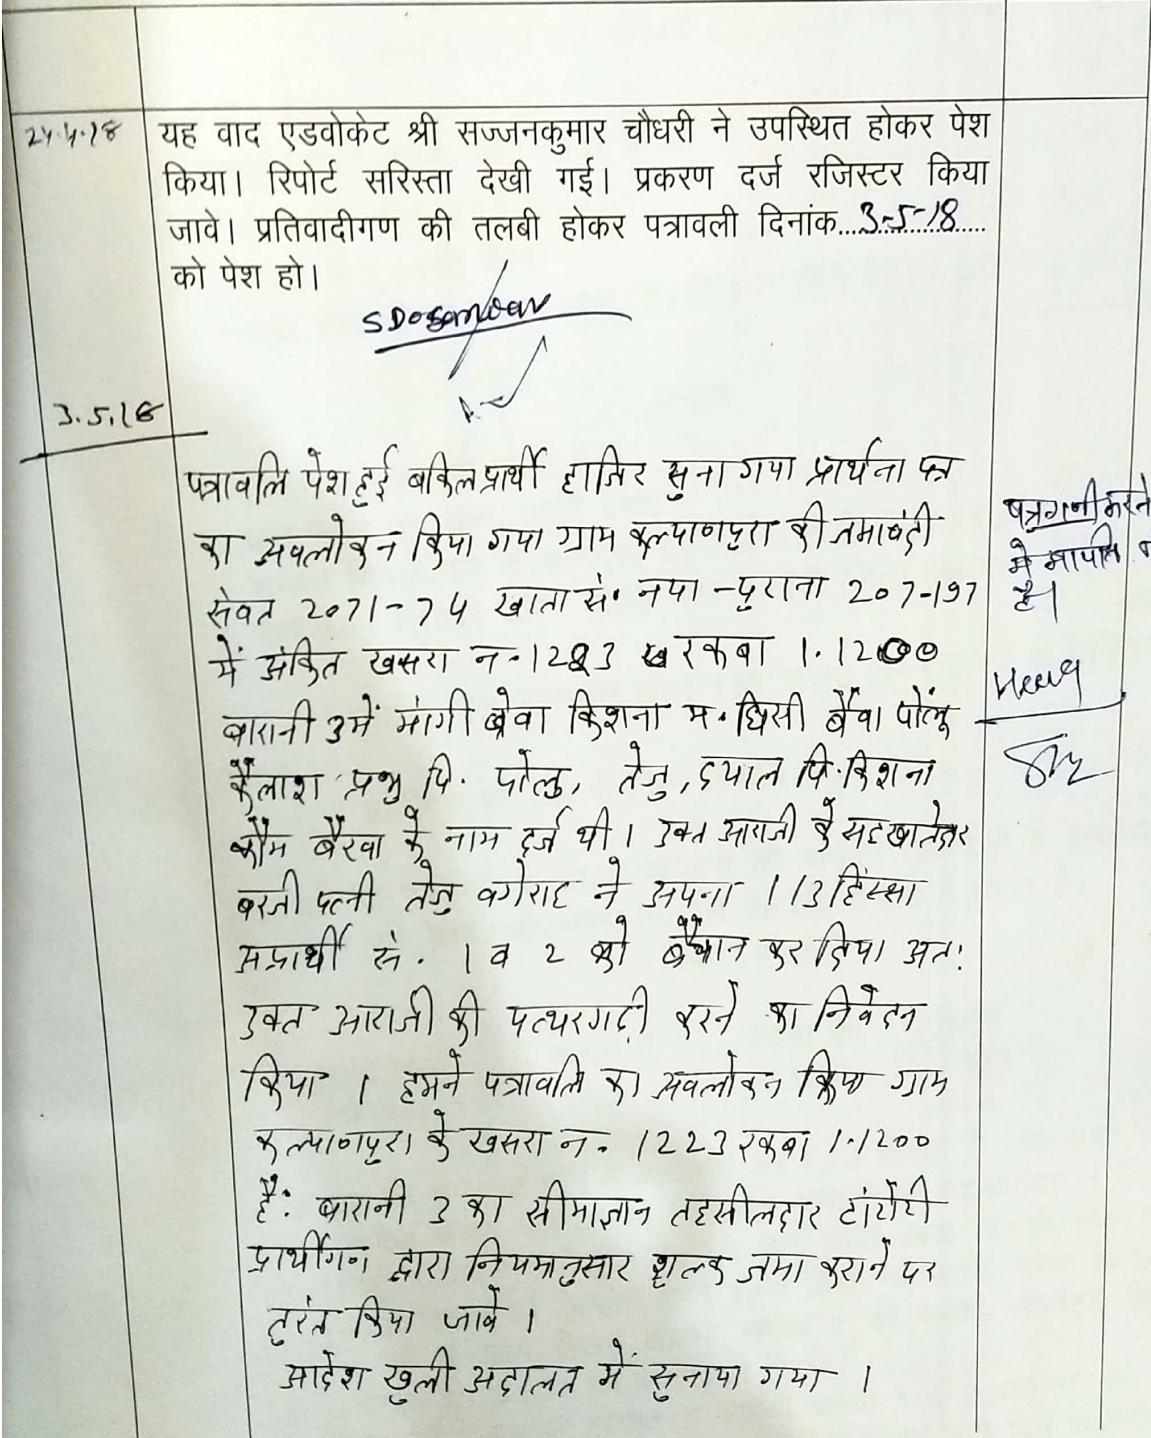 24.4.18
यह वाद एडवोकेट श्री सज्जनकुमार चौधरी ने उपस्थित होकर पेश
किया। रिपोर्ट सरिस्ता देखी गई। प्रकरण दर्ज रजिस्टर किया
जावे। प्रतिवादीगण की तलबी होकर पत्रावली दिनांक...3-5-18......
को पेश हो।
3.5.18
पत्रावलि पेश हुई वकिल प्रार्थी हाजिर सुना गया प्रार्थना पत्र
का अवलोकन किया गया ग्राम कल्याणपुरा की जमाबंदी
संवत 2071-74 खाता सं. नया-पुराना 207-197
में अंकित खसरा न. 1223 रकबा 1.1200
बारानी 3 में मांगी बेवा किशना म. घिसी बैवा पोलू
कैलाश प्रभु पि. पोलु, तेजु, दयाल पि. किशना
कौम बैरवा के नाम दर्ज थी। उक्त आराजी के सहखातेदार
बरजी पत्नी तेजु वगेराह ने अपना 1/3 हिस्सा
अप्रार्थी सं. 1 व 2 को बैचान कर दिया अत:
उक्त आराजी की पत्थरगढ़ी करने का निवेदन
किया। हमने पत्रावलि का अवलोकन किया ग्राम
कल्याणपुरा के खसरा न. 1223 रकबा 1.1200
है: बारानी 3 का सीमाज्ञान तहसीलदार टांटोटी
प्रार्थीगण द्वारा नियमानुसार शुल्क जमा कराने पर
तुरंत किया जावे।
आदेश खुली अदालत में सुनाया गया।
करने
में
है।